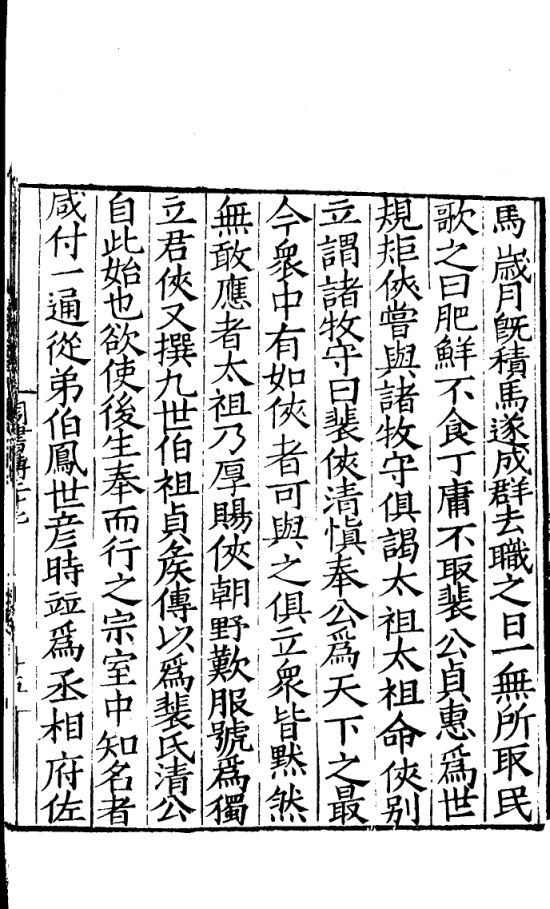 馬歲月既積馬遂成群去職之日一無所取民
歌之曰肥鮮不食丁庸不取裴公貞惠爲世
規矩俠嘗與諸牧守俱謁太祖太祖命俠别
立謂諸牧守曰裴俠清慎奉公爲天下之最
今衆中有如俠者可與之俱立衆皆默然
無敢應者太祖乃厚賜俠朝野歎服號爲獨
立君俠又撰九世伯祖貞矦傳以爲裴氏清公
自此始也欲使後生奉而行之宗室中知名者
咸付一通從弟伯鳳世彦時竝爲丞相府佐